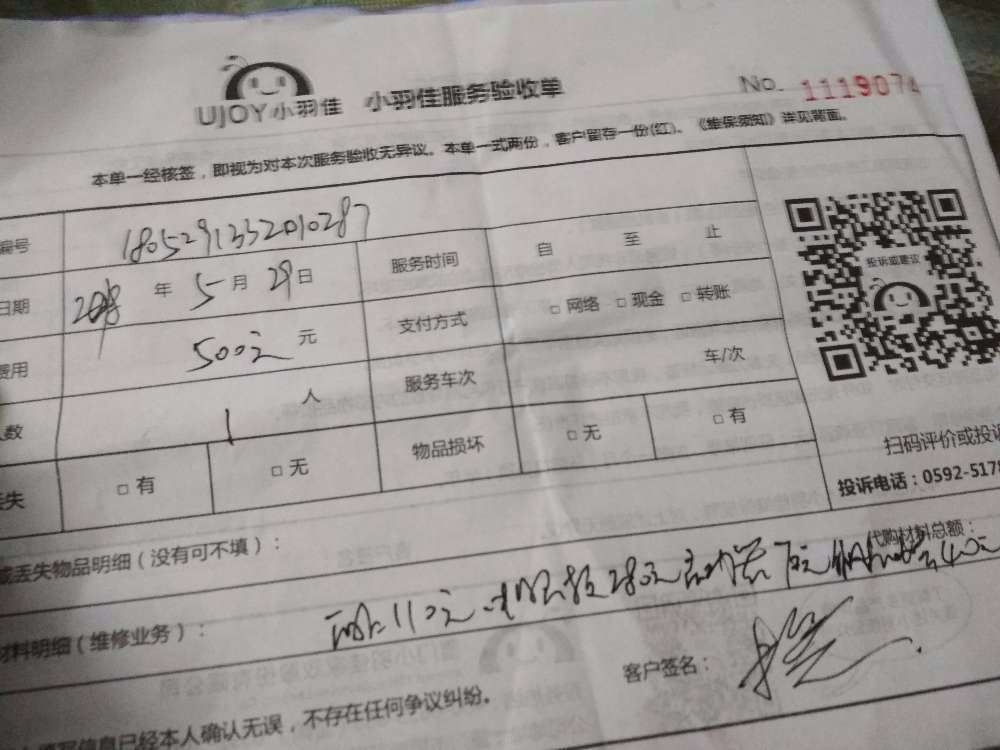 UJOY小羽佳 小羽佳服务验收单 No. 1119074
本单一经核签，即视为对本次服务验收无异议。本单一式两份，客户留存一份(红)、《维保须知》详见背面。
编号 1805291332010287 服务时间 自 至 止
日期 2018 年 5 月 29 日 支付方式 □ 网络 □ 现金 □ 转账
费用 500元 元 服务车次 车/次
人数 1 人 物品损坏 □ 无 □ 有
丢失 □ 有 □ 无
投诉或建议
扫码评价或投诉
投诉电话：0592-5178
或丢失物品明细（没有可不填）： 代购材料总额：
材料明细（维修业务）： 110元 280元 40元
客户签名：
信息已经本人确认无误，不存在任何争议纠纷。